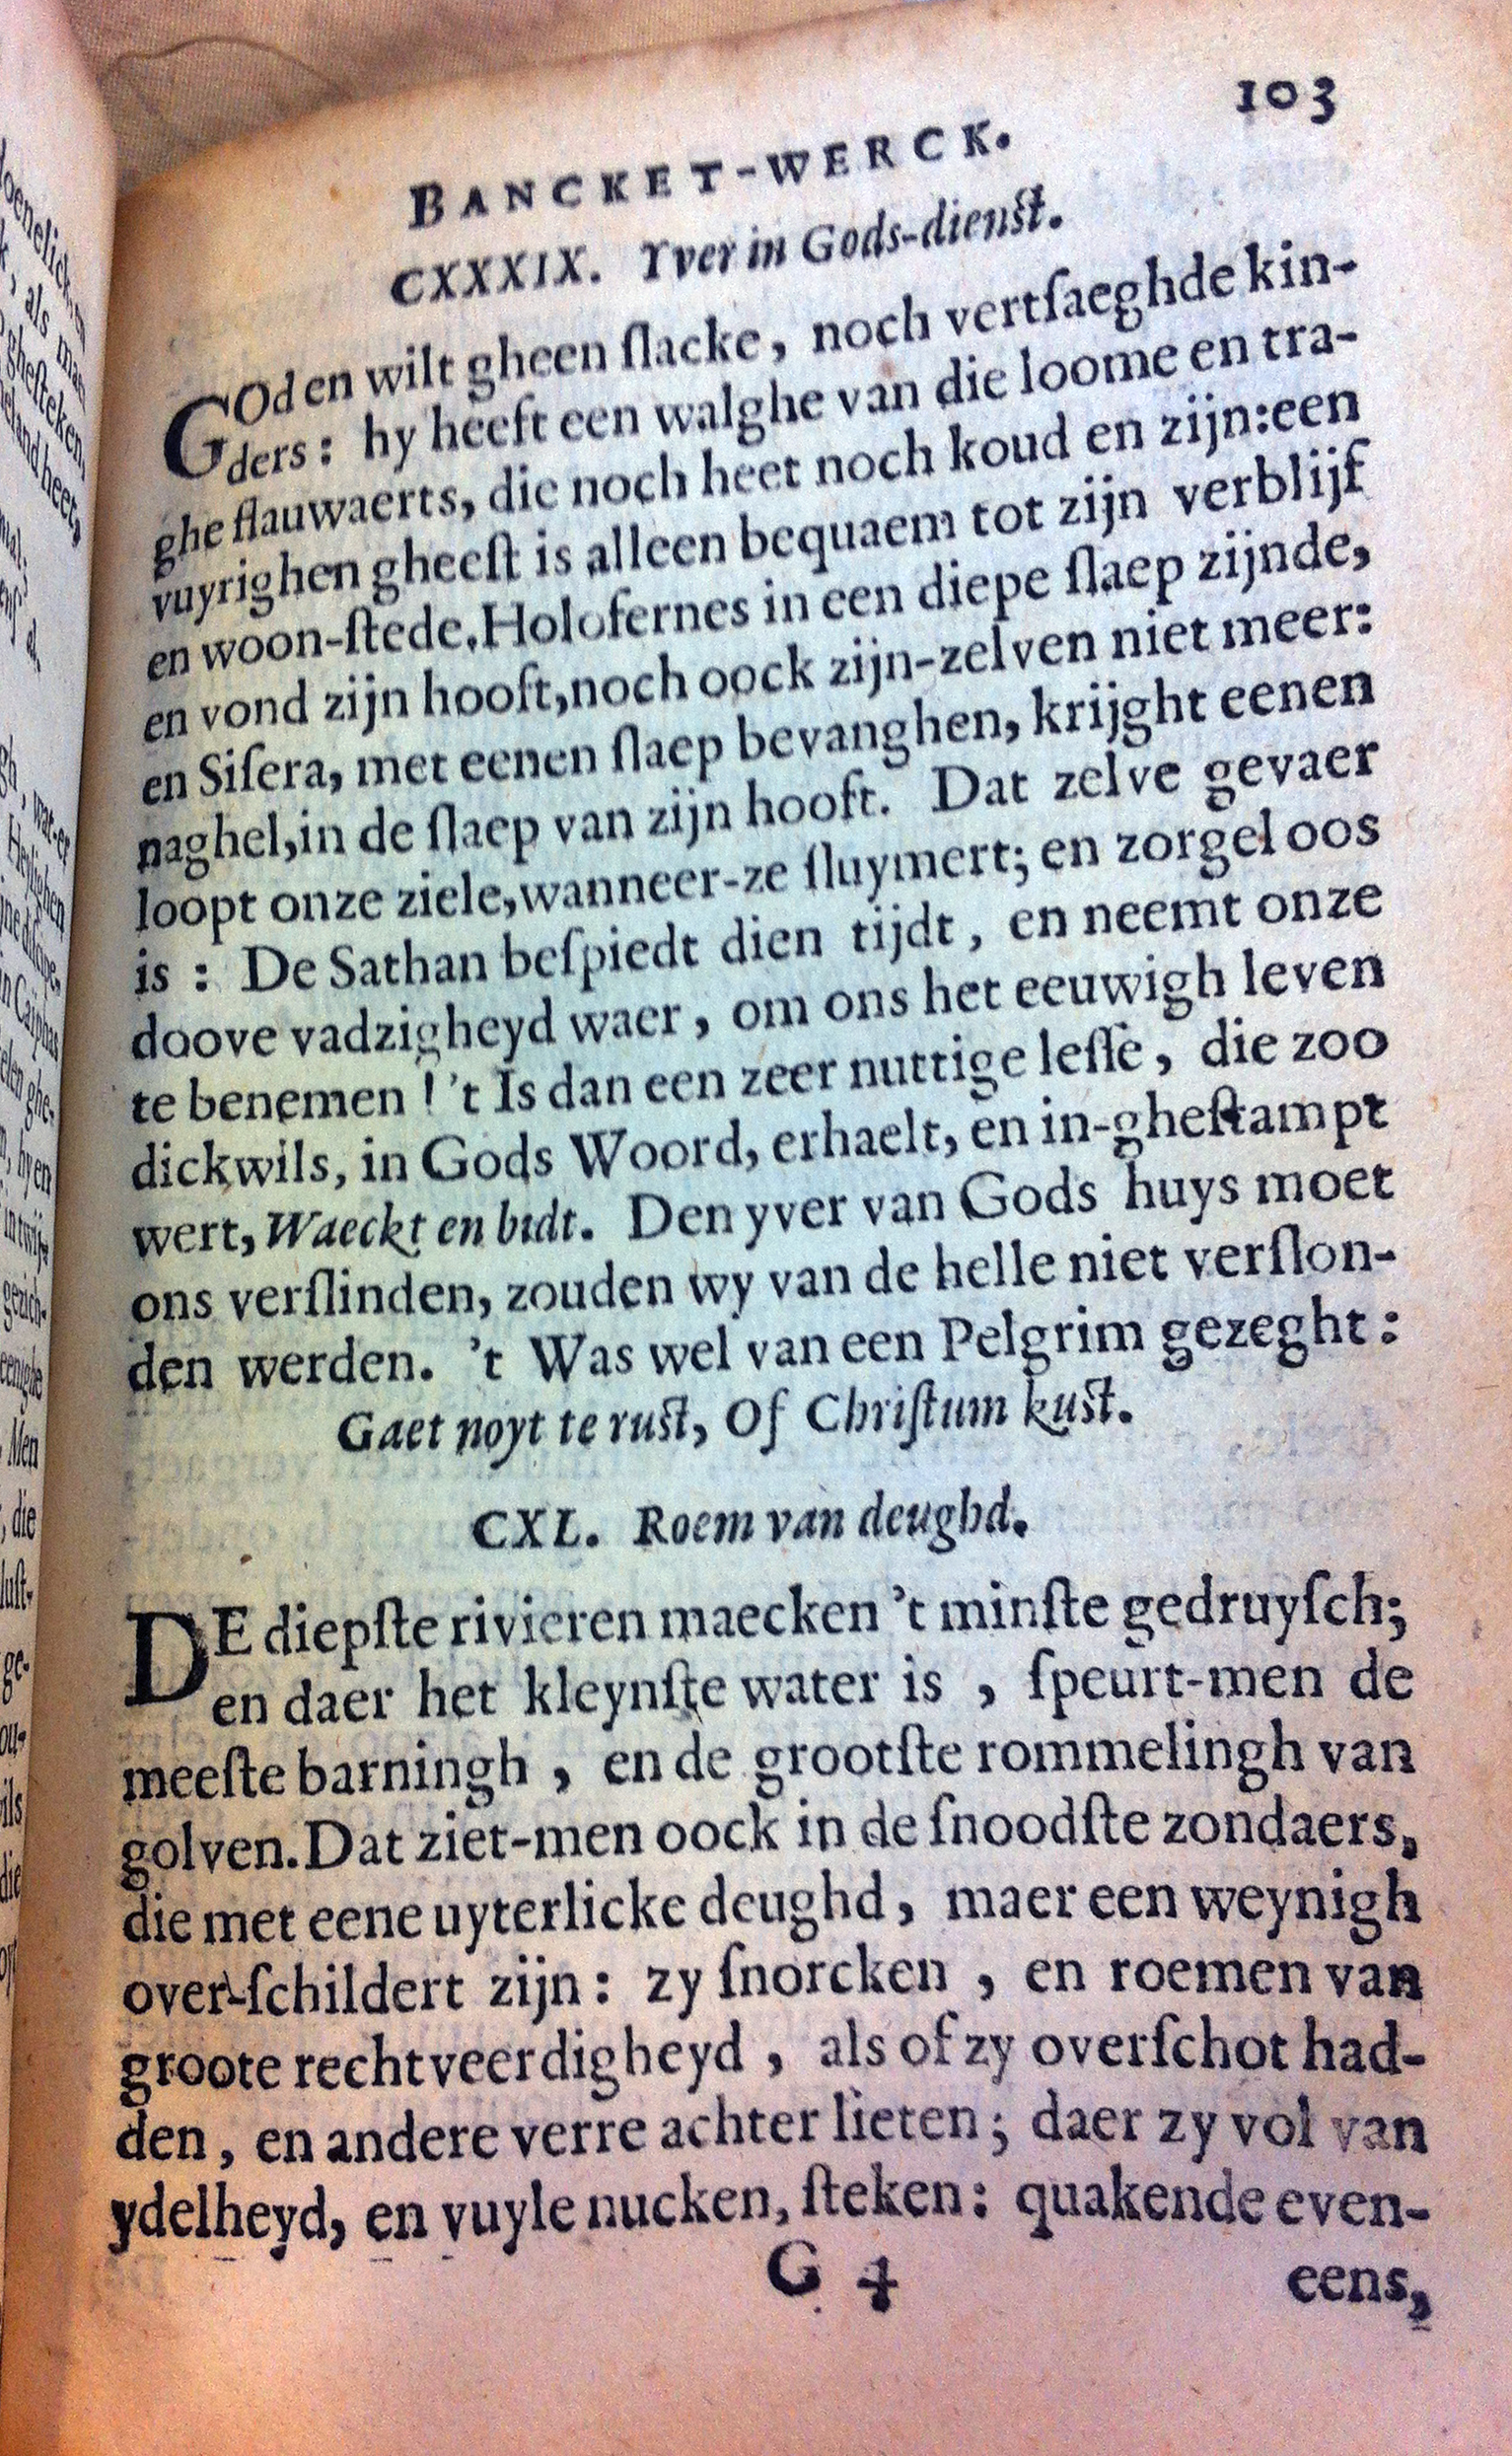 103
BANCKET-WERCK.
CXXXIX. Yver in Gods-dienſt.
GOd en wilt gheen ſlacke, noch vertſaeghde kin-
ders: hy heeft een walghe van die loome en tra-
ghe flauwaerts, die noch heet noch koud en zijn: een
vuyrighen gheeſt is alleen bequaem tot zijn verblijf
en woon-ſtede. Holofernes in een diepe ſlaep zijnde,
en vond zijn hooft, noch oock zijn-zelven niet meer:
en Siſera, met eenen ſlaep bevanghen, krijght eenen
naghel, in de ſlaep van zijn hooft. Dat zelve gevaer
loopt onze ziele, wanneer-ze ſluymert; en zorgeloos
is: De Sathan beſpiedt dien tijdt, en neemt onze
doove vadzigheyd waer, om ons het eeuwigh leven
te benemen! 't Is dan een zeer nuttige leſſe, die zoo
dickwils, in Gods Woord, erhaelt, en in-gheſtampt
wert, Waeckt en bidt. Den yver van Gods huys moet
ons verſlinden, zouden wy van de helle niet verſlon-
den werden. 't Was wel van een Pelgrim gezeght:
Gaet noyt te ruſt, Of Chriſtum kuſt.
CXL. Roem van deughd.
DE diepſte rivieren maecken 't minſte gedruyſch;
en daer het kleynſte water is, ſpeurt-men de
meeſte barningh, en de grootſte rommelingh van
golven. Dat ziet-men oock in de ſnoodſte zondaers,
die met eene uyterlicke deughd, maer een weynigh
over-ſchildert zijn: zy ſnorcken, en roemen van
groote rechtveerdigheyd, als of zy overſchot had-
den, en andere verre achter lieten; daer zy vol van
ydelheyd, en vuyle nucken, ſteken: quakende even-
G 4
eens,